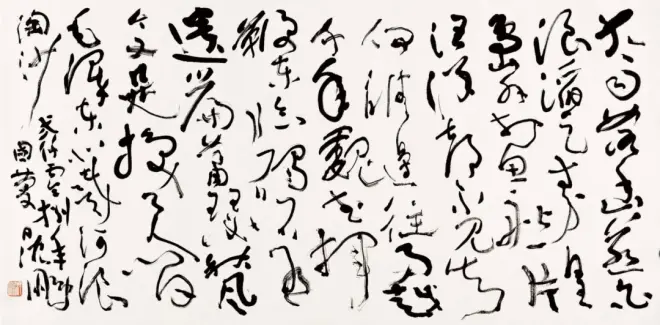 大雨落幽燕白
浪滔天秦皇
岛外打鱼船一片
汪洋都不见知
向谁边往事越
千年魏武挥
鞭东临碣石有
遗篇萧瑟秋风
今又是换了人间
毛澤东北戴河浪
淘沙
沈鹏